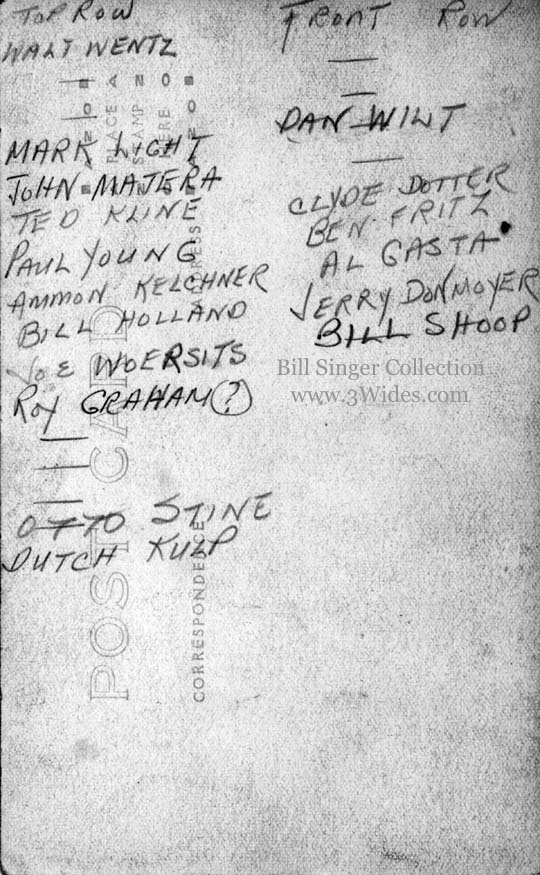 TOP ROW
WALT WENTZ
MARK LIGHT
JOHN MAJERA
TED KLINE
PAUL YOUNG
AMMON KELCHNER
BILL HOLLAND
JOE WOERSITS
ROY GRAHAM (?)
OTTO STINE
DUTCH KULP
FRONT ROW
DAN WILT
CLYDE DOTTER
BEN FRITZ
AL GASTA
JERRY DONMOYER
BILL SHOOP
Bill Singer Collection
www.3Wides.com
PLACE
STAMP
HERE
POST CARD
CORRESPONDENCE